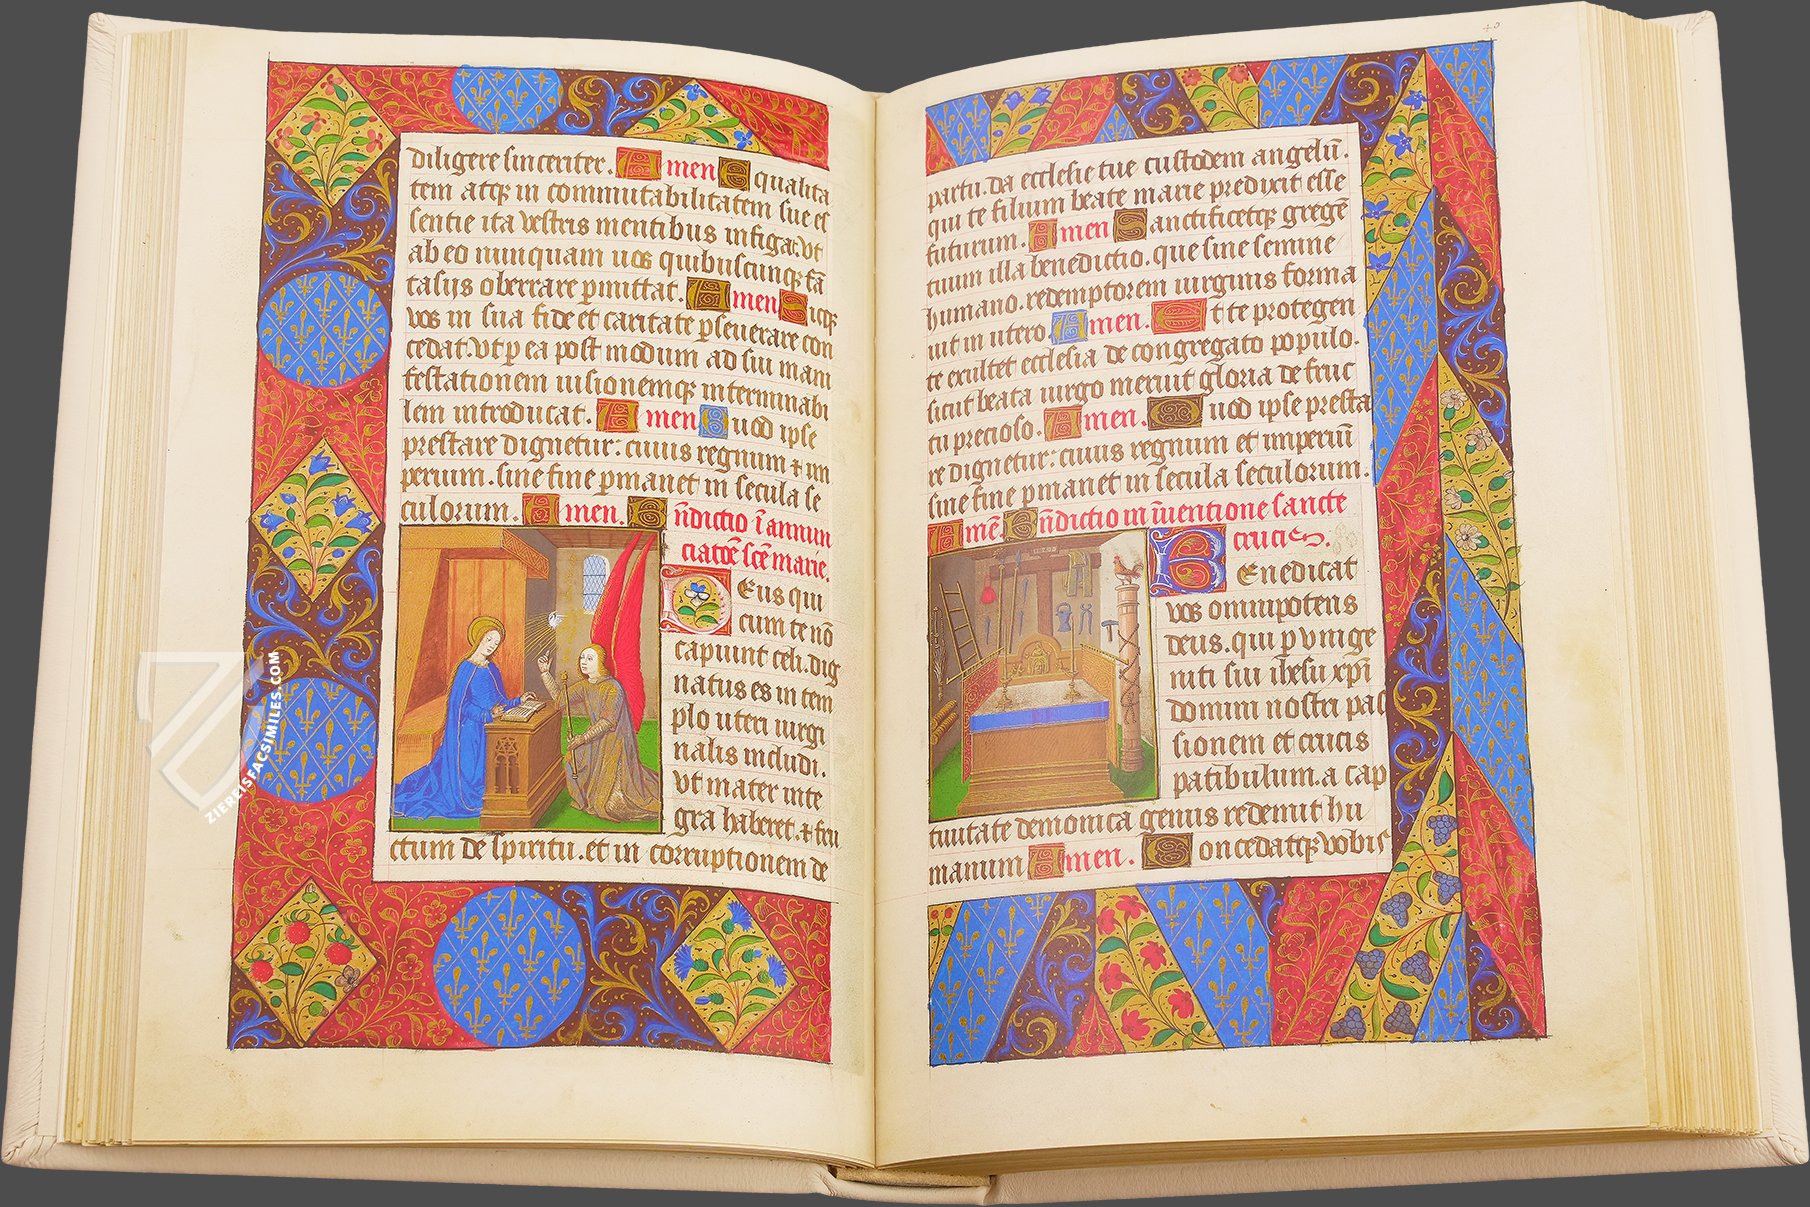 diligere sinceriter. Amen Equalita
tem atq̨ in commutabilitatem sue es
sentie ita vestris mentibus infigat. vt
ab eo nunquam uos quibuscunq̨ fā
tasijs oberrare p̱mittat. Amen Sicq̨
vos in sua fide et caritate p̱seuerare con
cedat. vt p̱ ea post modum ad sui mani
festationem uisionemq̨ interminabi
lem introducat. Amen Quod ipse
prestare dignetur: cuius regnum ⁊ im
perium. sine fine p̱manet in secula se
culorum. Amen. Bn̄dictio ī annun
ciatōe sc̄e marie.
Deus qui
cum te nō
capiunt celi. dig
natus es in tem
plo uteri uirgi
nalis includi.
vt mater inte
gra haberet. ⁊ fru
ctum de spiritu. et in corruptionem de
40
partu. da ecclesie tue custodem angelū.
qui te filium beate marie predixit esse
futurum. Amen Sanctificetq̨ gregē
tuum illa benedictio. que sine semine
humano. redemptorem uirginis forma
uit in utero. Amen. Et te protegen
te exultet ecclesia de congregato populo.
sicut beata uirgo meruit gloria de fruc
tu precioso. Amen. Quod ipse presta
re dignetur: cuius regnum et imperiū
sine fine p̱manet in secula seculorum.
Amē. Bn̄dictio in īuentione sancte
crucis.
Benedicat
vos omnipotens
deus. qui p̱ vnige
niti sui ih̄esu xp̄i
domini nostri pas
sionem et crucis
patibulum. a cap
tiuitate demonica genus redemit hu
manum Amen. Concedatq̨ vobis
ZIEREISFACSIMILES.COM